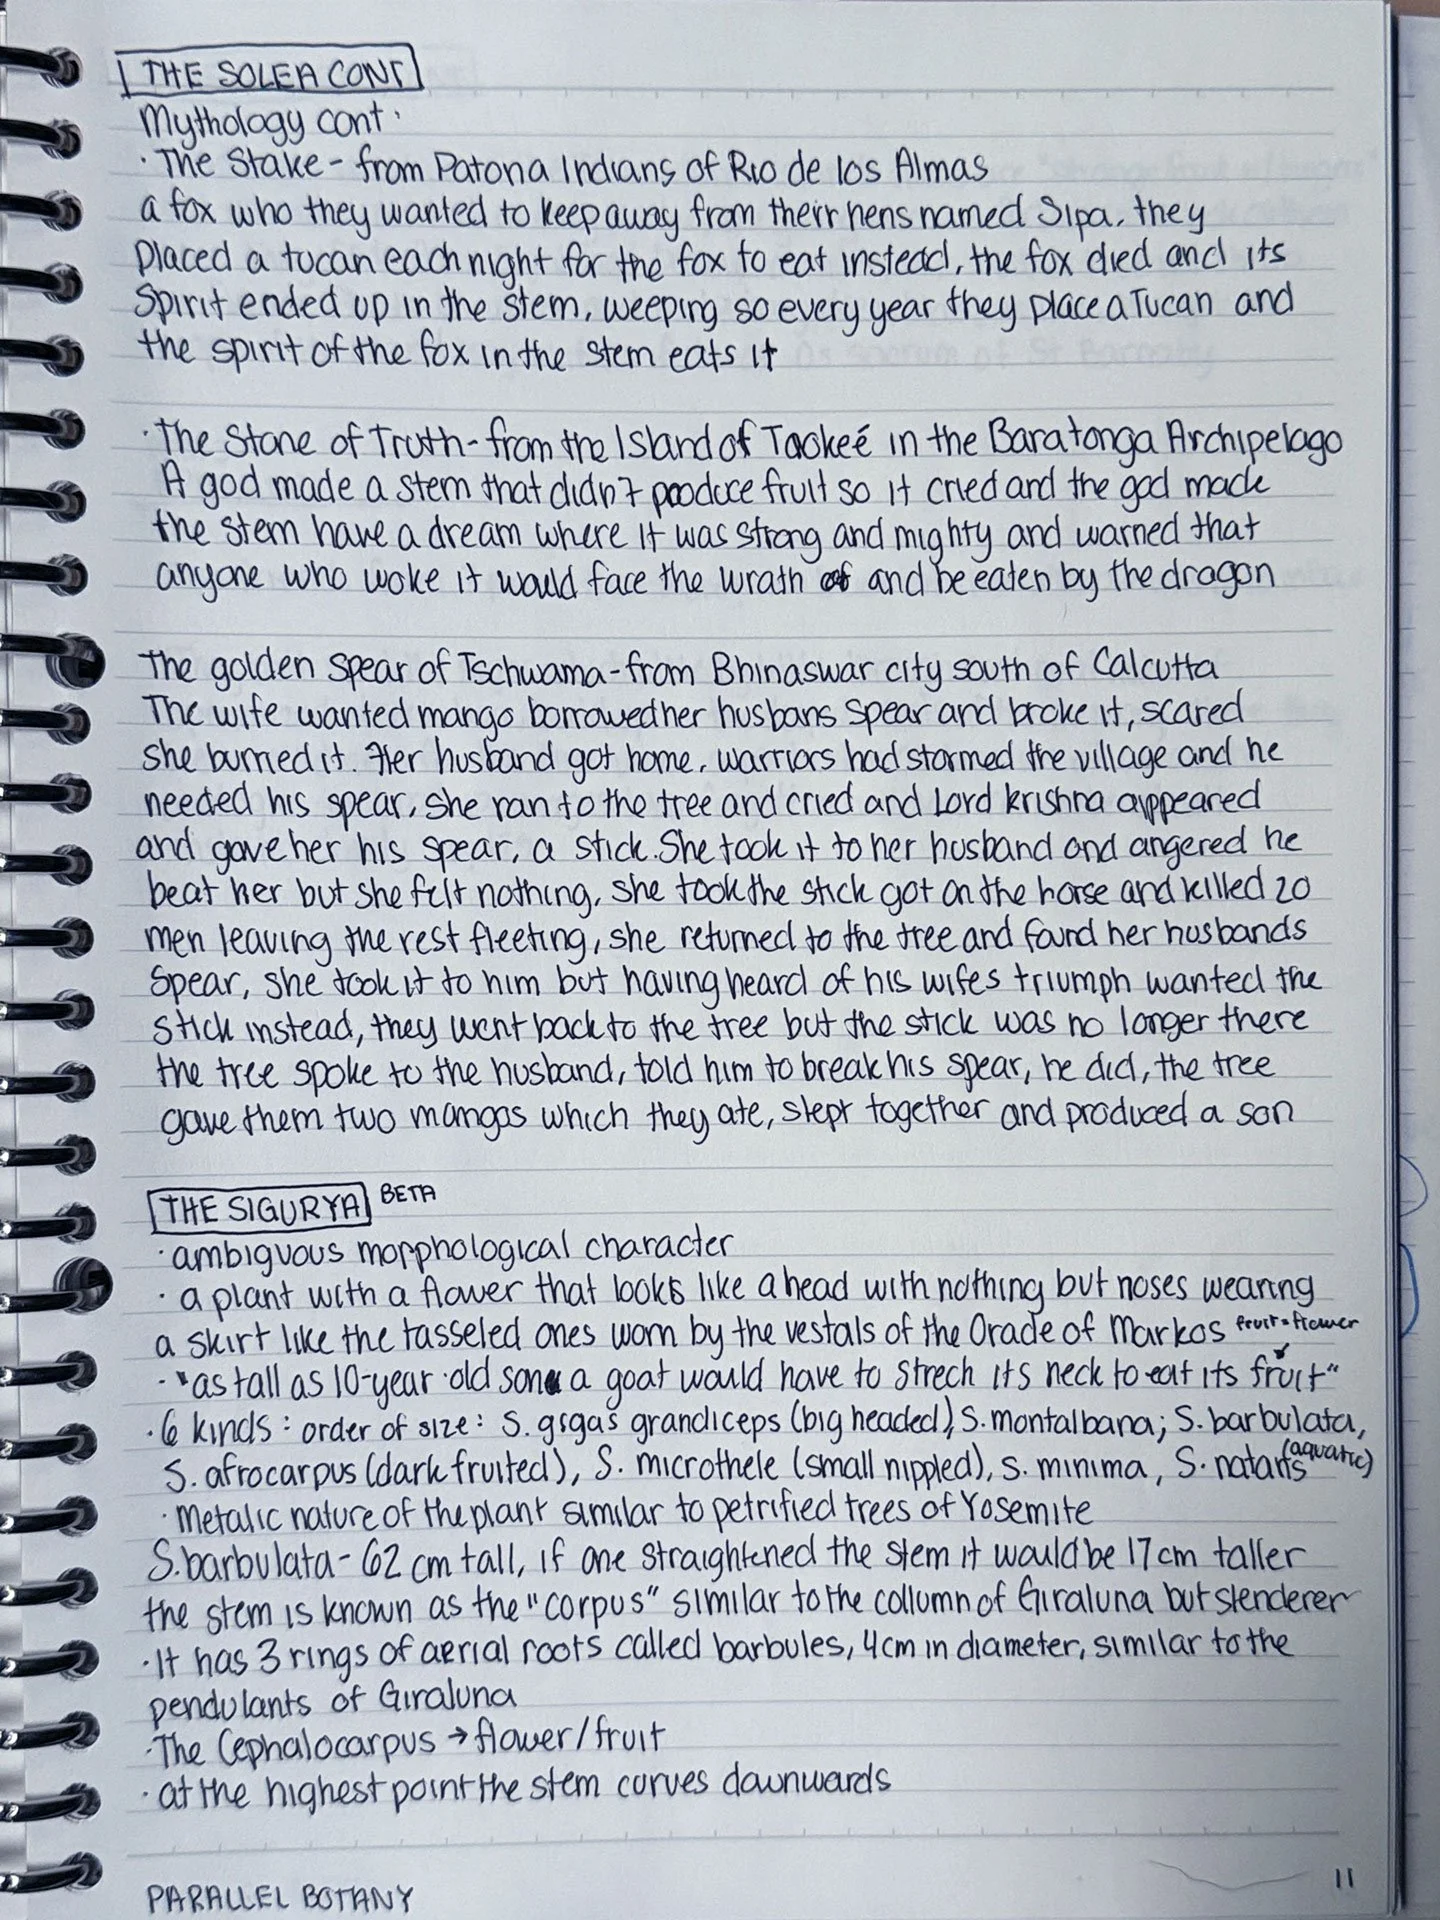 THE SOLEA CONT
Mythology cont.
· The Stake - from Patona Indians of Rio de los Almas
a fox who they wanted to keep away from their hens named Sipa. they
placed a tucan each night for the fox to eat instead, the fox died and its
spirit ended up in the stem, weeping so every year they place a Tucan and
the spirit of the fox in the stem eats it
· The Stone of Truth - from the Island of Taokeé in the Baratonga Archipelago
A god made a stem that didn't produce fruit so it cried and the god made
the stem have a dream where it was strong and mighty and warned that
anyone who woke it would face the wrath of and be eaten by the dragon
The golden Spear of Tschwama - from Bhinaswar city south of Calcutta
The wife wanted mango borrowed her husbans spear and broke it, scared
she burried it. Her husband got home, warriors had stormed the village and he
needed his spear, she ran to the tree and cried and Lord Krishna appeared
and gave her his spear, a stick. She took it to her husband and angered he
beat her but she felt nothing, she took the stick got on the horse and killed 20
men leaving the rest fleeting, she returned to the tree and found her husbands
spear, she took it to him but having heard of his wifes triumph wanted the
stick instead, they went back to the tree but the stick was no longer there
the tree spoke to the husband, told him to break his spear, he did, the tree
gave them two mangos which they ate, slept together and produced a son
THE SIGURYA BETA
· ambiguous morphological character
· a plant with a flower that looks like a head with nothing but noses wearing
a skirt like the tasseled ones worn by the vestals of the Oracle of Markos fruit = flower
· "as tall as 10-year-old son a goat would have to strech its neck to eat its fruit"
· 6 kinds : order of size : S. gigas grandiceps (big headed), S. montalbana; S. barbulata,
S. afrocarpus (dark fruited), S. microthele (small nippled), S. minima, S. natans (aquatic)
· Metalic nature of the plant similar to petrified trees of Yosemite
S. barbulata - 62 cm tall, if one straightened the stem it would be 17cm taller
the stem is known as the "corpus" similar to the collumn of Giraluna but slenderer
· It has 3 rings of aerial roots called barbules, 4cm in diameter, similar to the
pendulants of Giraluna
· The Cephalocarpus → flower/fruit
· at the highest point the stem curves downwards
PARALLEL BOTANY
11